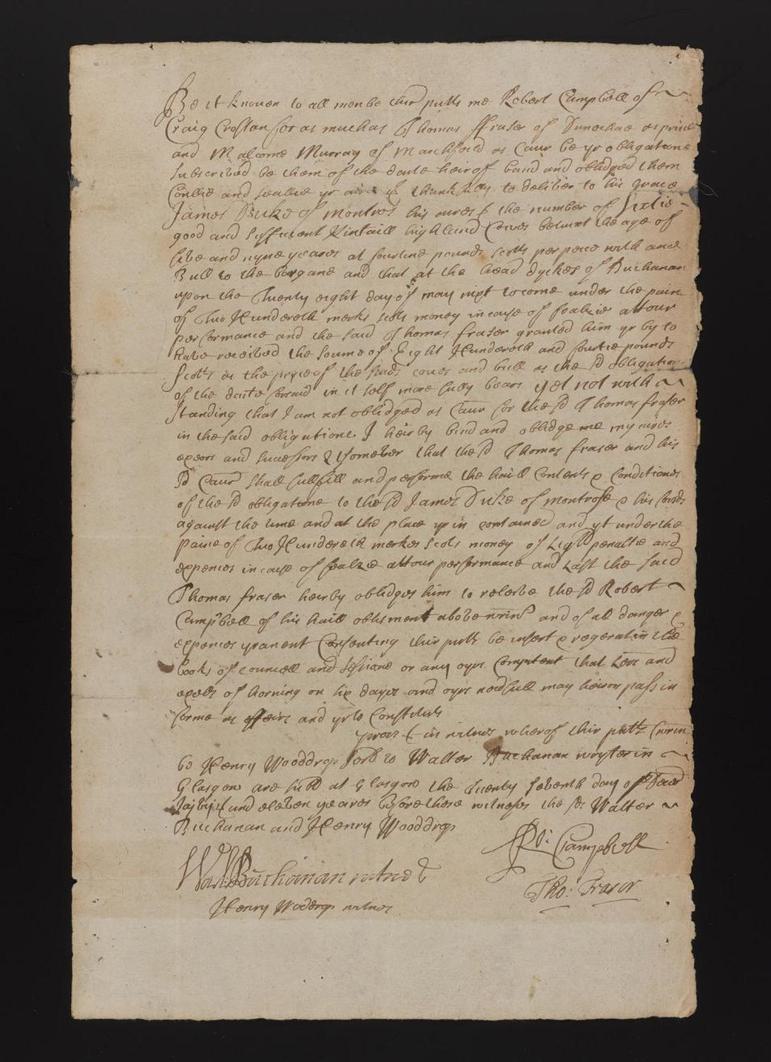 Be it knowen to all men be thir putts me Robert Campbell of
Craig Crostan for as much as Thomas ffraser of Dunochae as prinle
and Malcome Murray of Marchfeild as Caur be yr obligatione
subscrived be them of the daite heirof band and oblidged them
Conllie and seallie yr aires & to deliver to his grace
James Duke of Montros his aires & the number of sixtie
good and sufficient Kintaill highland Cowes betwixt the age of
five and nyne yeares at fourtine pounds Scotts per peice with ane
Bull to the bargane and that at the head dyckes of Buchanan
upon the Twenty eight day of may nixt to come under the paine
of Two Hundereth merks scots money in caise of failzie attour
performance and the said Thomas fraser granted him yr by to
have received the soume of Eight Hundereth and fourtie pounds
Scotts as the pryce of the saids cowes and bull as the sd obligation
of the daite forsaid in it self more fully bears yet not with
standing that I am not oblidged as Caur for the sd Thomas fraser
in the said obligatione I heirby bind and oblidge me my aires
exers and successors & that the sd Thomas fraser and his
sd Caur shall fullfill and performe the haill contents & conditiones
of the sd obligatione to the sd James Duke of montrose & his forsds
against the time and at the place yr in contained and yt under the
paine of Two Hundereth merkes Scots money of penaltie and
expences in caise of failzie attour performance and Last the said
Thomas fraser heirby oblidges him to releive the sd Robert
Campbell of his haill oblisment above writn and of all danger &
expences yranent Consenting thir putts be insert & regerat in the
books of councell and sessione or any oyrs Competent that Lers and
exells of horning on six dayes and oyrs neidfull may heiron pass in
forme as effeirs and yrto Constituts
prors & in witnes wherof thir putts (wrin
be Henry Wooddrop servt to Walter Buchanan wryter in
Glasgow are subt at Glasgow the twenty seventh day of
Jajvij Hund eleven yeares before these witnesses the sd Walter
Buchanan and Henry Wooddrop
Ro: Campbell
Wal: Buchanan witnes
Tho: Fraser
Henry Wooddrop witnes